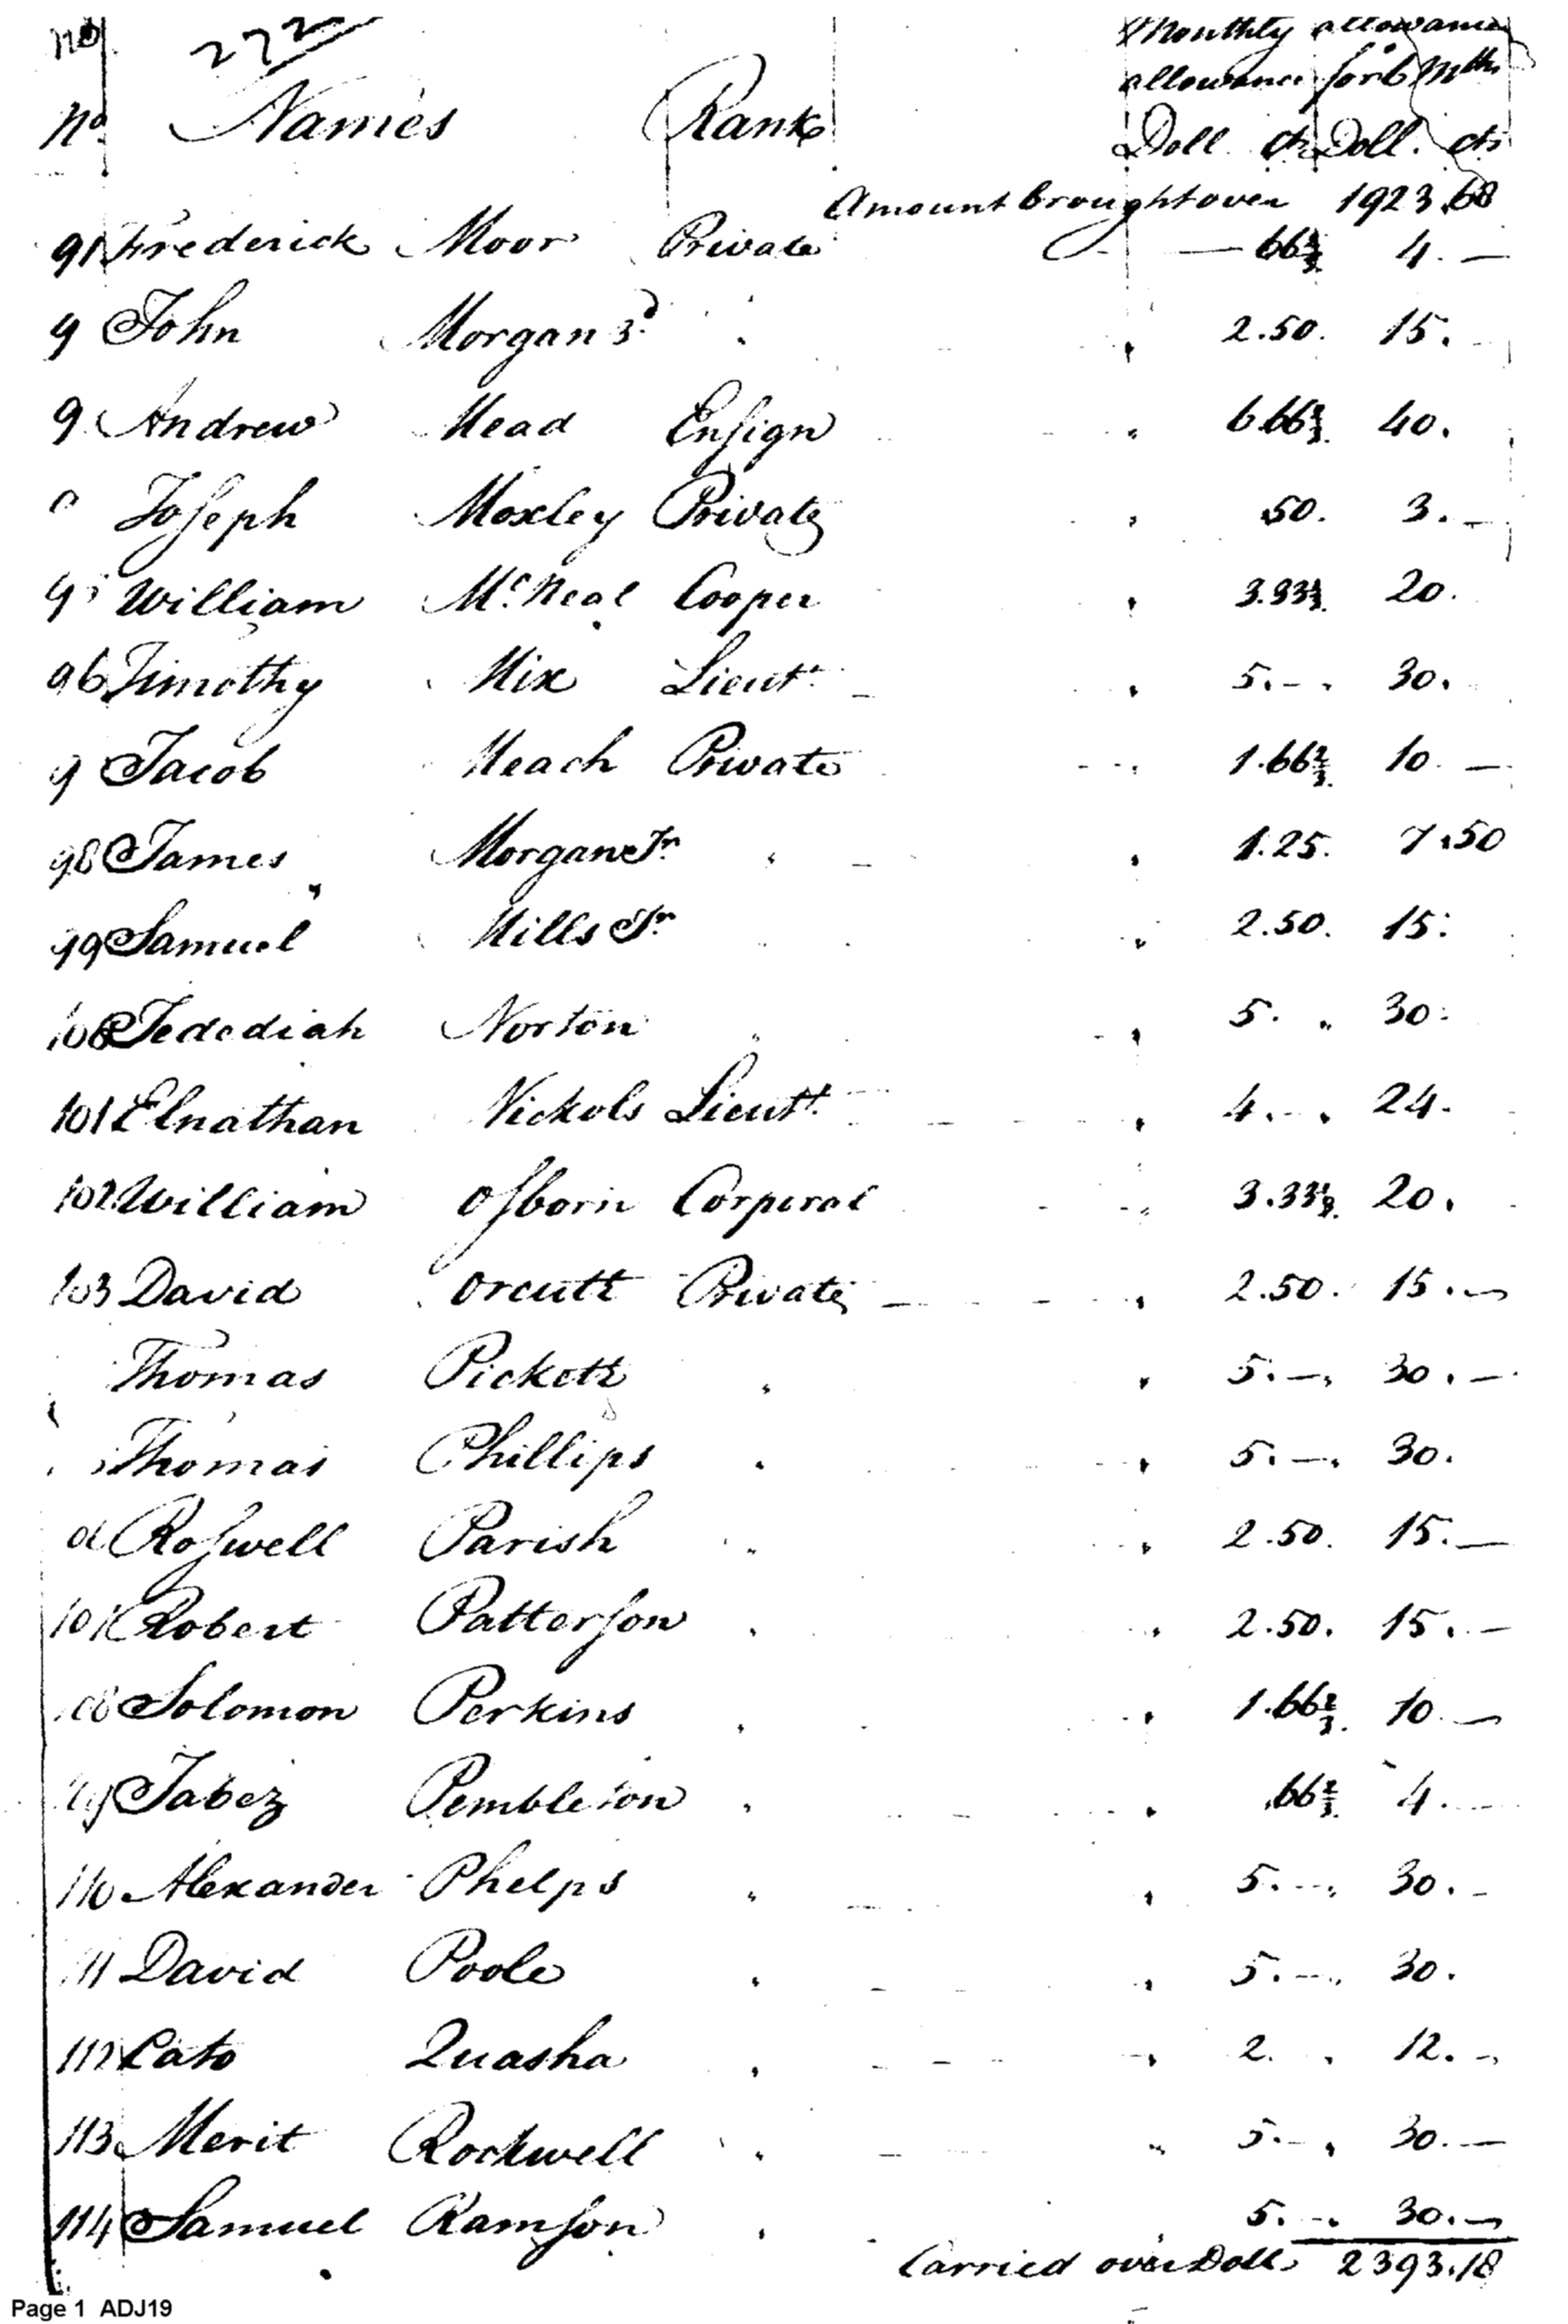 No
272
Monthly allowance
allowance for 6 Mths
No. Names Rank Doll. cts Doll. cts
Amount brought over 1923.68
91 Frederick Moor Private — 66⅔ 4. —
9 John Morgan 3d " " 2.50. 15.
9 Andrew Mead Ensign " 6.66⅔ 40.
Joseph Moxley Private " .50. 3. —
9 William Mc.Neal Cooper " 3.33⅓ 20.
96 Timothy Mix Lieutt. " 5. — . 30.
9 Jacob Meach Private " 1.66⅔ 10. —
98 James Morgan Jr. " " 1.25. 7.50
99 Samuel Mills Jr. " " 2.50. 15.
100 Jedediah Norton " " 5. " 30.
101 Elnathan Nickols Lieutt. " 4. — . 24.
102 William Osborn Corporal " 3.33⅓ 20.
103 David Orcutt Private — " 2.50. 15. —
Thomas Pickett " " 5. — . 30. —
Thomas Phillips " " 5. — . 30.
Roswell Parish " " 2.50. 15. —
107 Robert Patterson " " 2.50. 15. —
108 Solomon Perkins " " 1.66⅔ 10. —
109 Jabez Pembleton " " .66⅔ 4. —
110 Alexander Phelps " " 5. — . 30. —
111 David Poole " " 5. — . 30.
112 Cato Quasha " " 2. . 12. —
113 Merit Rockwell " " 5. — . 30. —
114 Samuel Ramson " " 5. — . 30. —
Carried over Doll. 2393.18
Page 1 ADJ19